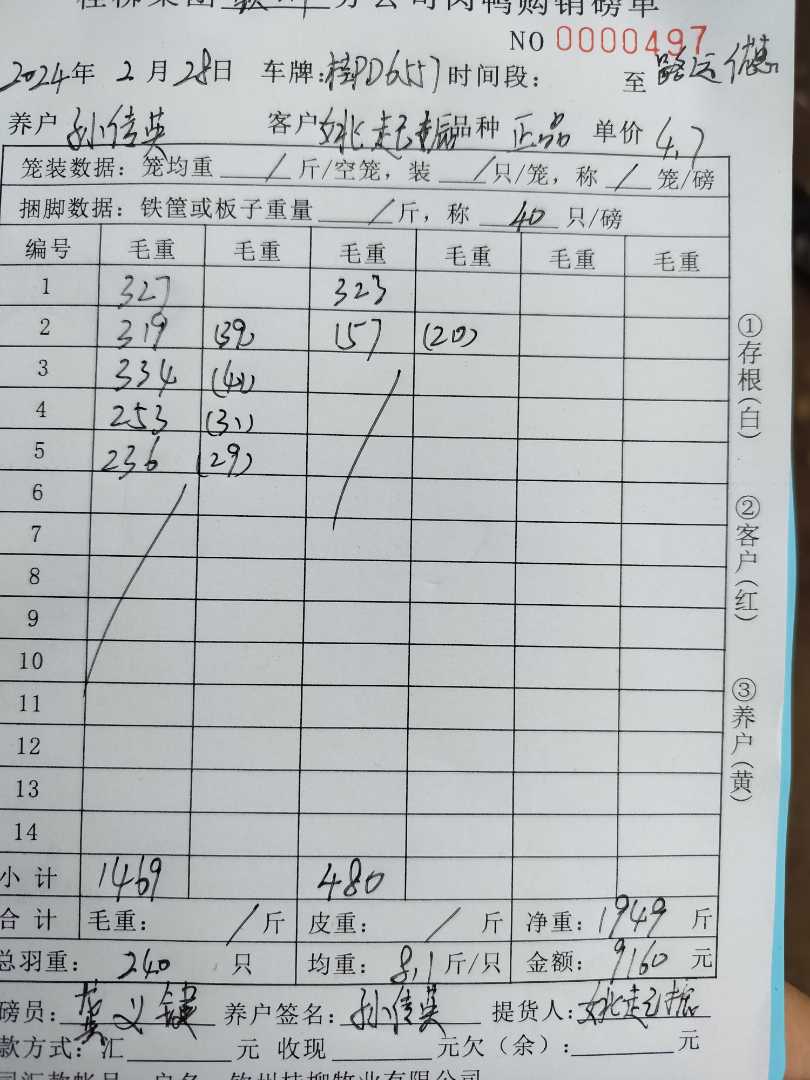 桂柳集团钦州分公司肉鸭购销磅单
NO 0000497
2024年 2月28日 车牌:桂PD6557时间段: 至
养户 孙倩英 客户 品种 正品 单价 4.7
笼装数据: 笼均重 / 斤/空笼, 装 / 只/笼, 称 / 笼/磅
捆脚数据: 铁筐或板子重量 / 斤, 称 40 只/磅
编号 毛重 毛重 毛重 毛重 毛重 毛重
1 327 323
2 319 (39) 157 (20)
3 334
4 253 (31)
5 236 (29)
6
7
8
9
10
11
12
13
14
小计 1469 480
合计 毛重: / 斤 皮重: / 斤 净重: 1949 斤
总羽重: 240 只 均重: 8.1 斤/只 金额: 9160 元
磅员: 养户签名: 孙倩英 提货人:
款方式: 汇 元 收现 元欠(余): 元
司汇款帐号 户名 钦州桂柳牧业有限公司
①存根(白)
②客户(红)
③养户(黄)